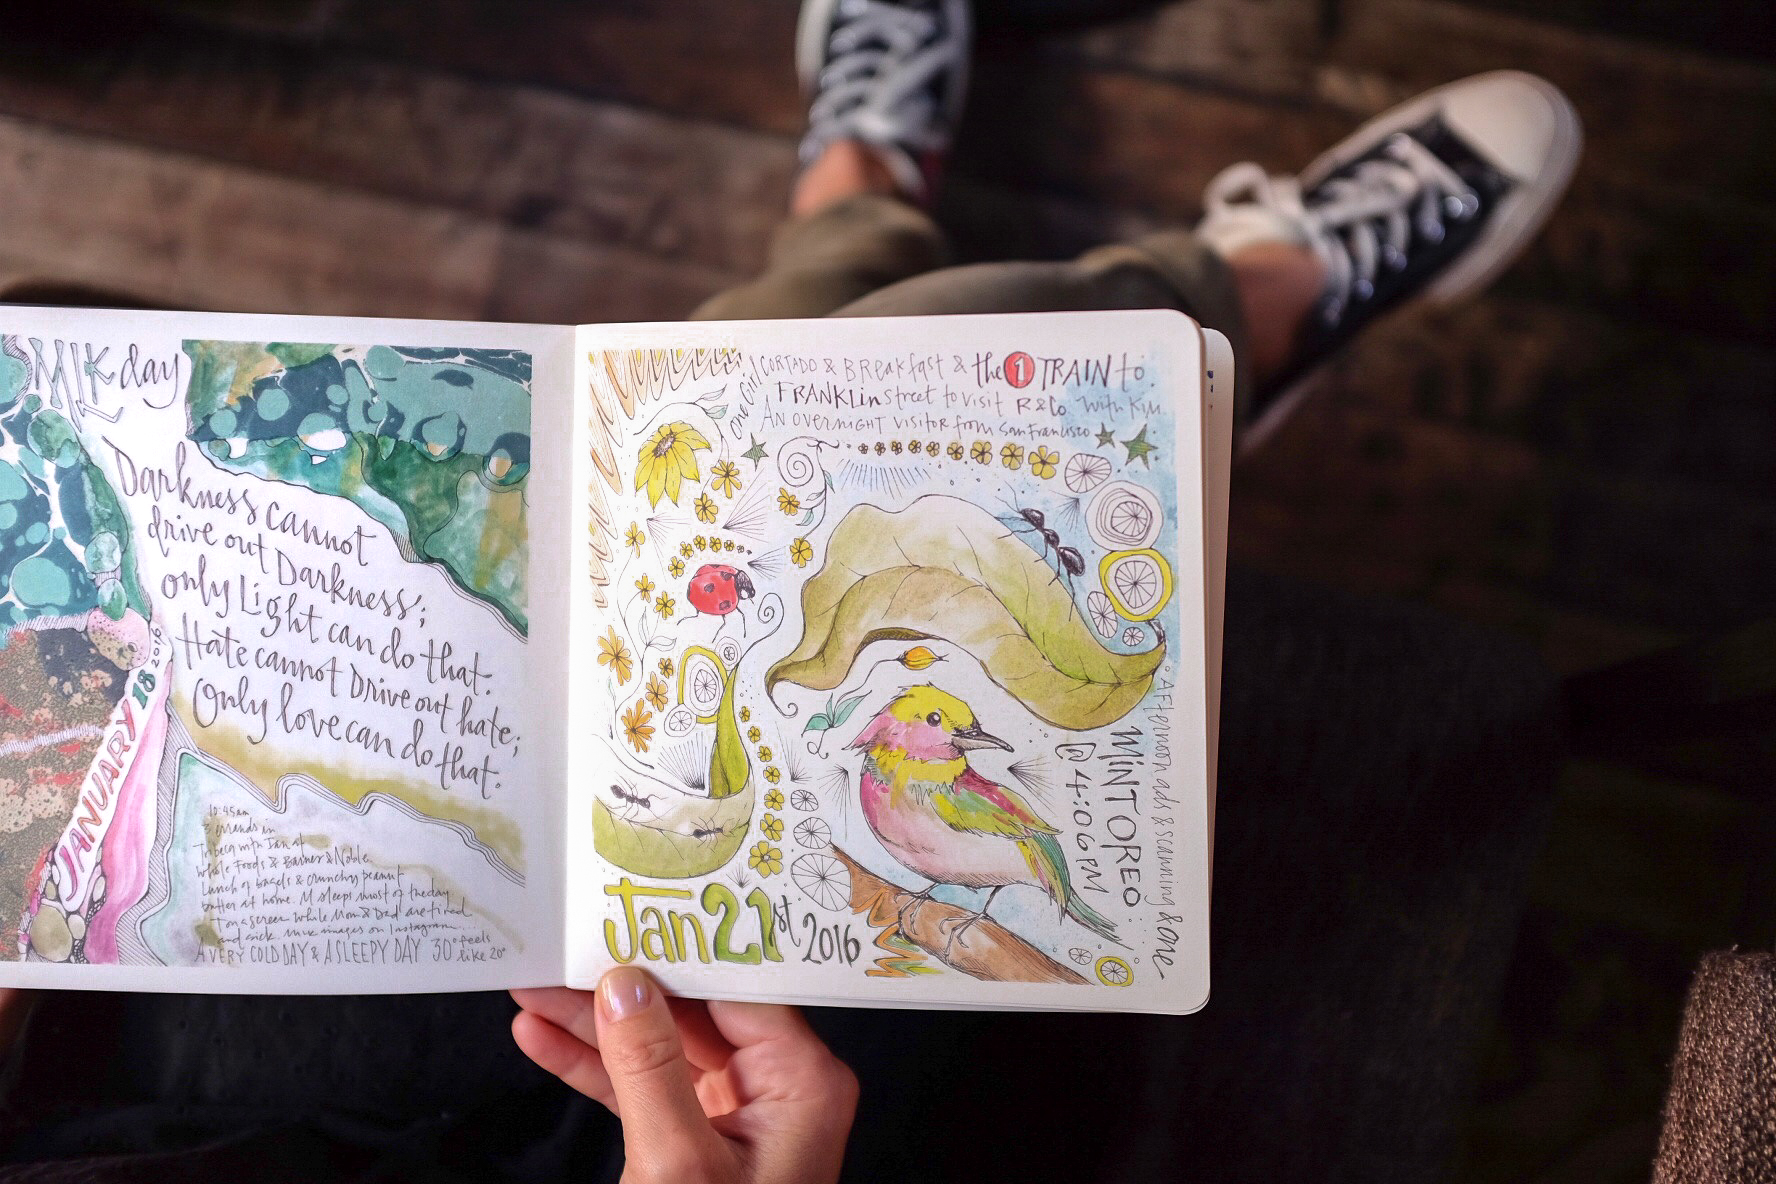 MLK day
Darkness cannot
drive out Darkness;
only Light can do that.
Hate cannot Drive out hate;
Only love can do that.
JANUARY 18 2016
10:45am
errands in
Tribeca with Ian at
Whole Foods & Barnes & Noble
Lunch of bagels & crunchy peanut
butter at home. M sleeps most of the day
on a screen while Mom & Dad are tired
and sick. MLK images on Instagram....
A VERY COLD DAY & A SLEEPY DAY 30° feels
like 20°
CORTADO & BREAKfast & the 1 TRAIN to
FRANKLIN street to visit R&Co. with Kim
AN OVERNIGHT VISITOR from San Francisco
one Girl
MINTOREO
@ 4:06 PM
AFternoon ads & scanning & one
Jan 21st 2016